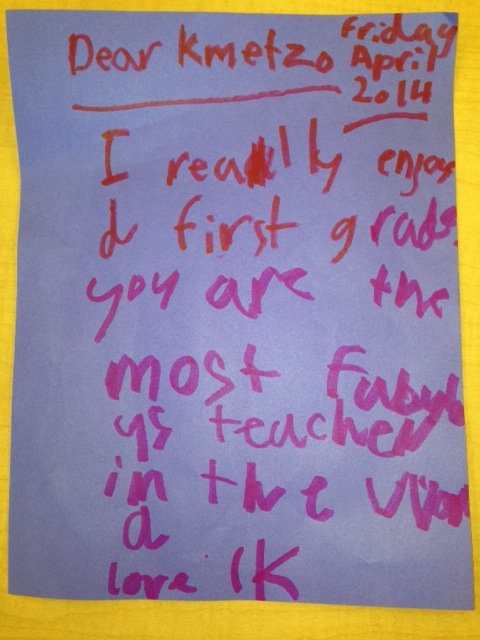 Dear Kmetzo
Friday
April
2014
I really enjoye
d first grade.
you are the
most fabyl
ys teacher
in the
d
love IK